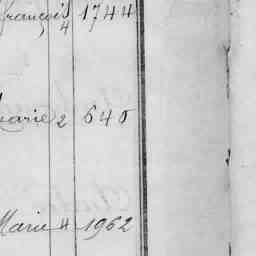 françois 4 1744
marie 2 640
Marie 4 1962